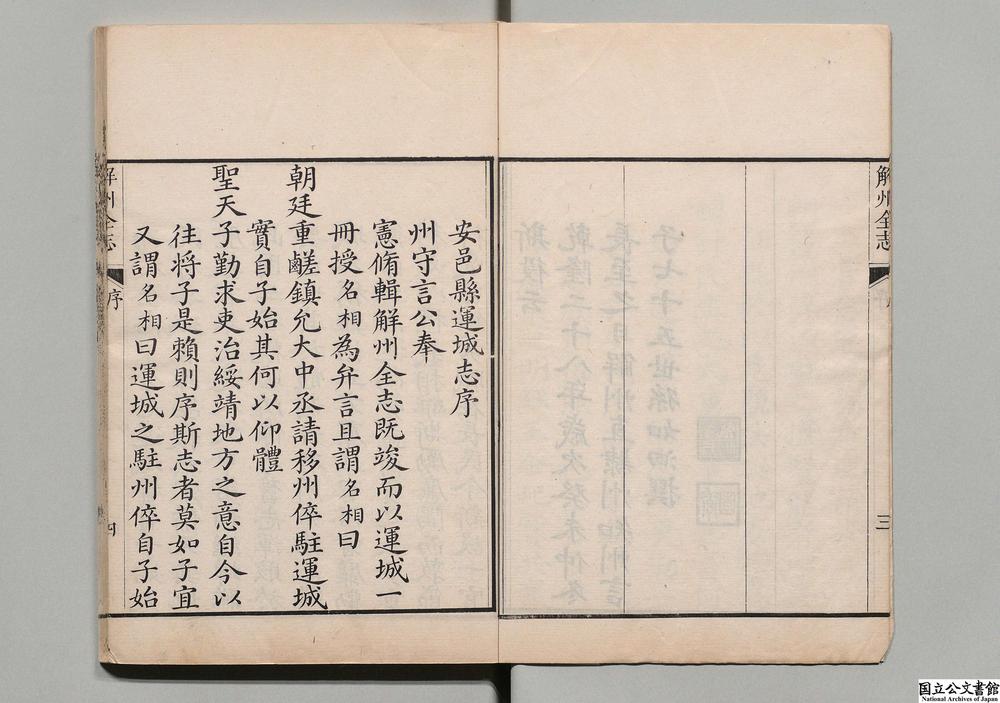 解州全志
三
安邑縣運城志序
州守言公奉
憲脩輯解州全志既竣而以運城一
冊授名相為弁言且謂名相曰
朝廷重鹺鎮允大中丞請移州倅駐運城
實自子始其何以仰體
聖天子勤求吏治綏靖地方之意自今以
往將子是賴則序斯志者莫如子宜
又謂名相曰運城之駐州倅自子始
解州全志
序
四
国立公文書館
National Archives of Japan